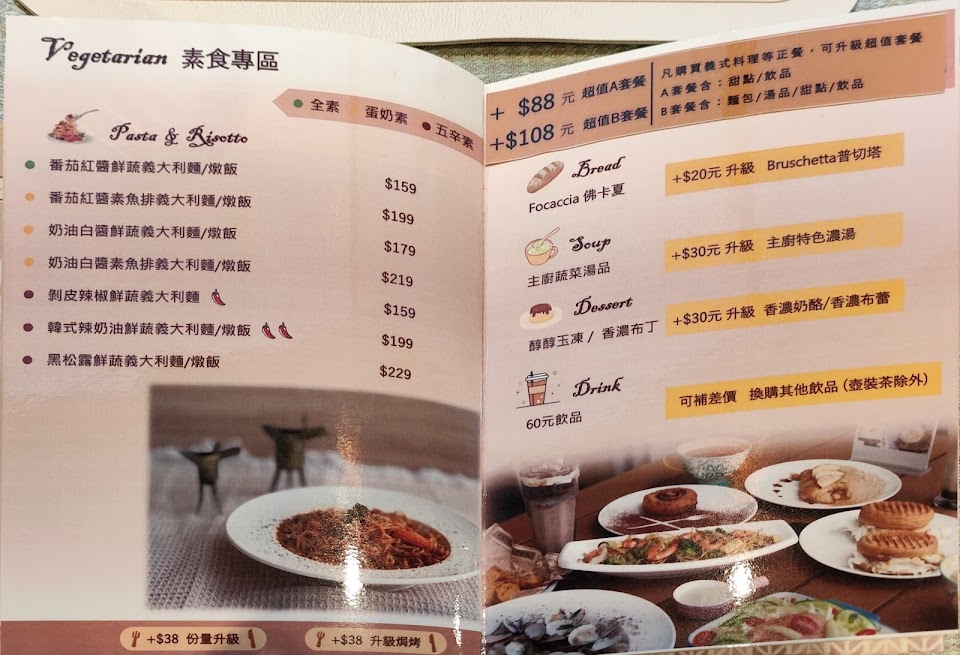 Vegetarian 素食專區
全素 蛋奶素 五辛素
Pasta & Risotto
番茄紅醬鮮蔬義大利麵/燉飯 $159
番茄紅醬素魚排義大利麵/燉飯 $199
奶油白醬鮮蔬義大利麵/燉飯 $179
奶油白醬素魚排義大利麵/燉飯 $219
剝皮辣椒鮮蔬義大利麵 $159
韓式辣奶油鮮蔬義大利麵/燉飯 $199
黑松露鮮蔬義大利麵/燉飯 $229
+$38 份量升級 +$38 升級焗烤
+ $88 元 超值A套餐
+$108 元 超值B套餐
凡購買義式料理等正餐，可升級超值套餐
A套餐含：甜點/飲品
B套餐含：麵包/湯品/甜點/飲品
Bread
Focaccia 佛卡夏
+$20元 升級 Bruschetta普切塔
Soup
主廚蔬菜湯品
+$30元 升級 主廚特色濃湯
Dessert
醇醇玉凍 / 香濃布丁
+$30元 升級 香濃奶酪/香濃布蕾
Drink
60元飲品
可補差價 換購其他飲品 (壺裝茶除外)